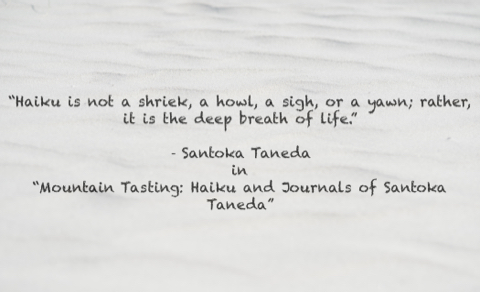 “Haiku is not a shriek, a howl, a sigh, or a yawn; rather,
it is the deep breath of life.”
- Santoka Taneda
in
“Mountain Tasting: Haiku and Journals of Santoka
Taneda”